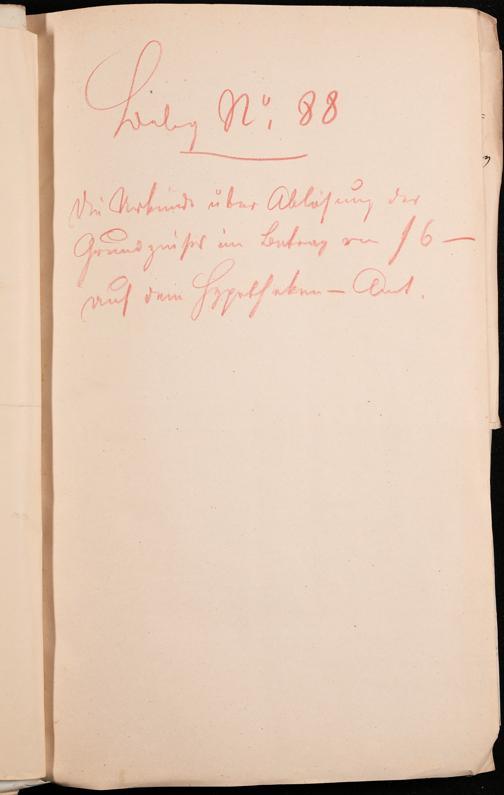 Beleg No. 88
Die Urkunde über Ablösung der
Grundzinses im Betrag von f 6 —
auf dem Hypotheken-Amt.